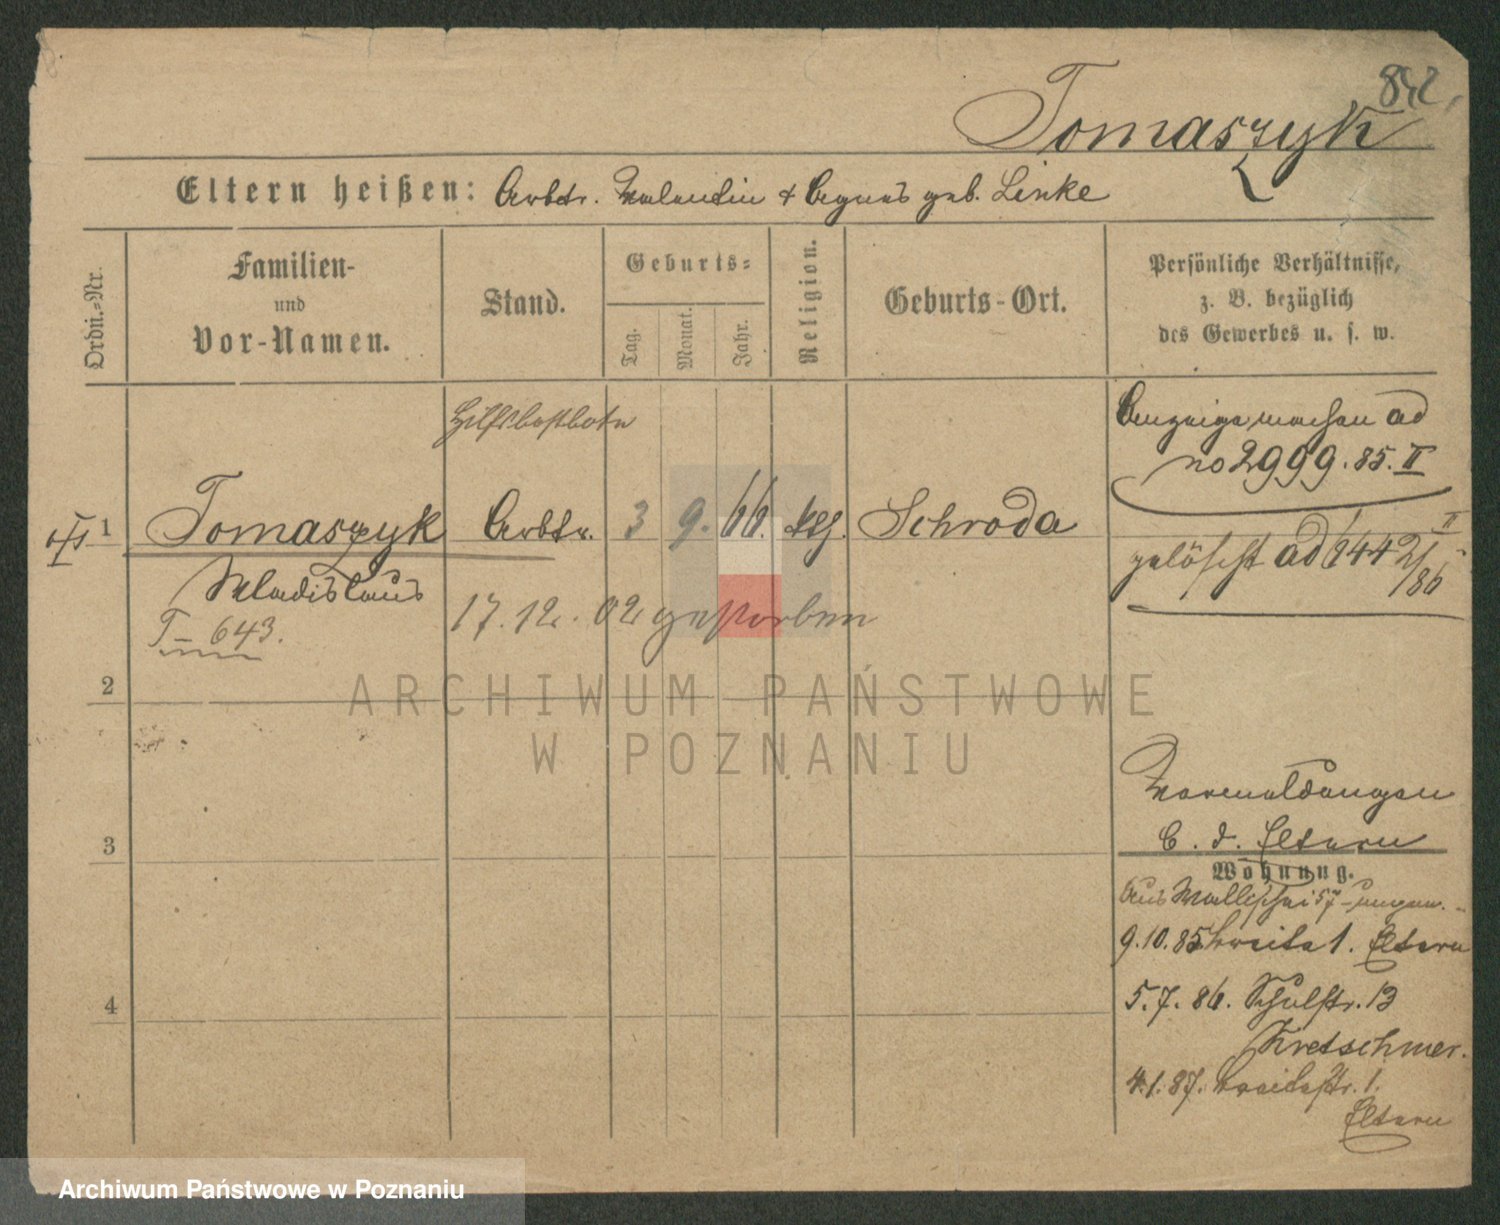 842
Tomaszyk
Eltern heißen: Arbtr. Valentin & Agnes geb. Linke
Ordn.-Nr.
Familien-
und
Vor-Namen.
Stand.
Geburts-
Tag.
Monat.
Jahr.
Religion.
Geburts-Ort.
Persönliche Verhältnisse,
z. B. bezüglich
des Gewerbes u. s. w.
Hilfspostbote
Anzeige machen ad
no 2999. 85. II
1 Tomaszyk Arbtr. 3 9. 66. kth. Schroda
gelöscht ad 1442/86 II
Wladislaus
T – 643.
17. 12. 02 gestorben
2
ARCHIWUM PAŃSTWOWE
W POZNANIU
Vormeldungen
b. d. Eltern
3
Wohnung.
Aus Wallischei 57
9.10.85 Breite 1. Eltern
4
5.7.86. Schulstr. 13
Kretschmer.
4.1.87. Breitestr. 1.
Eltern
Archiwum Państwowe w Poznaniu